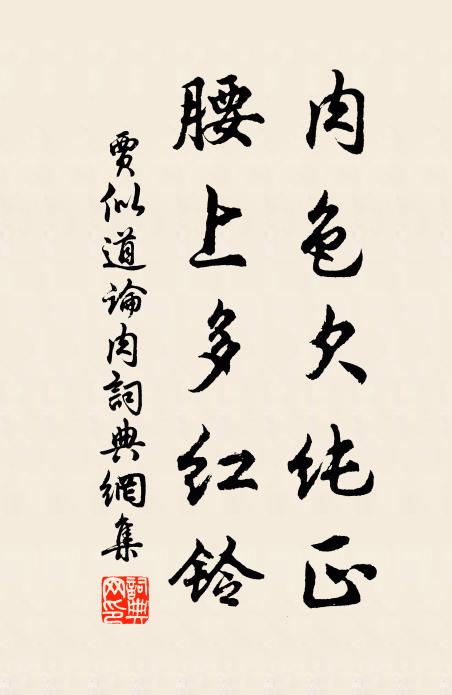 肉色欠纯正
腰上多红铃
賈似道论肉詞典網集
詞典网印